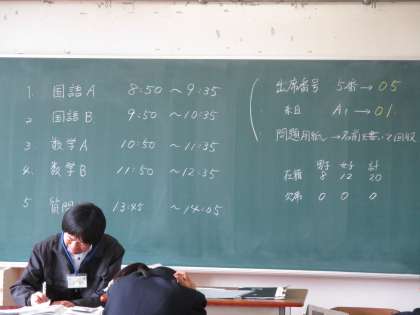 1. 国語A 8:50 〜 9:35
2. 国語B 9:50 〜 10:35
3. 数学A 10:50 〜 11:35
4. 数学B 11:50 〜 12:35
5 質問 13:45 〜 14:05
出席番号 5番 → 05
A1 → 01
問題用紙 → 名前を書いて回収
男子 女子 計
在籍 8 12 20
欠席 0 0 0